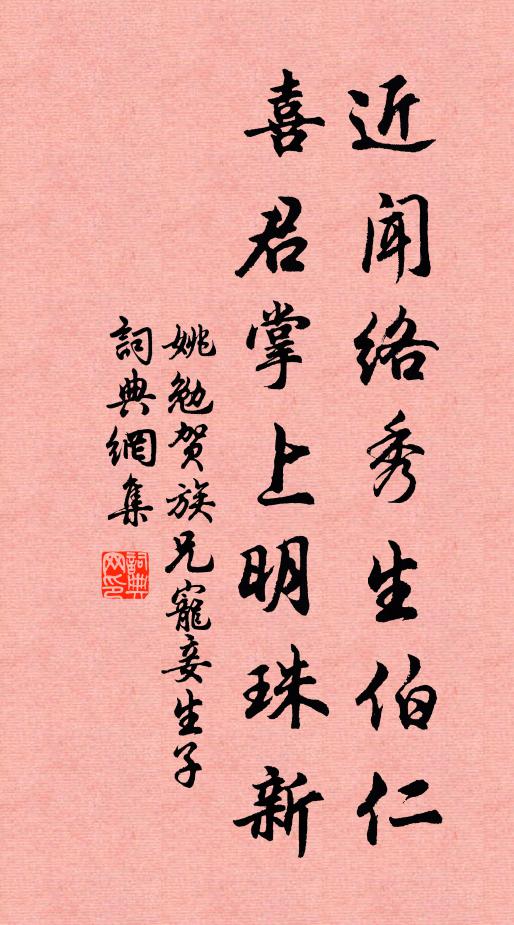 近聞絡秀生伯仁
喜君掌上明珠新
姚勉賀族兄寵妾生子
詞典網集
詞典網印